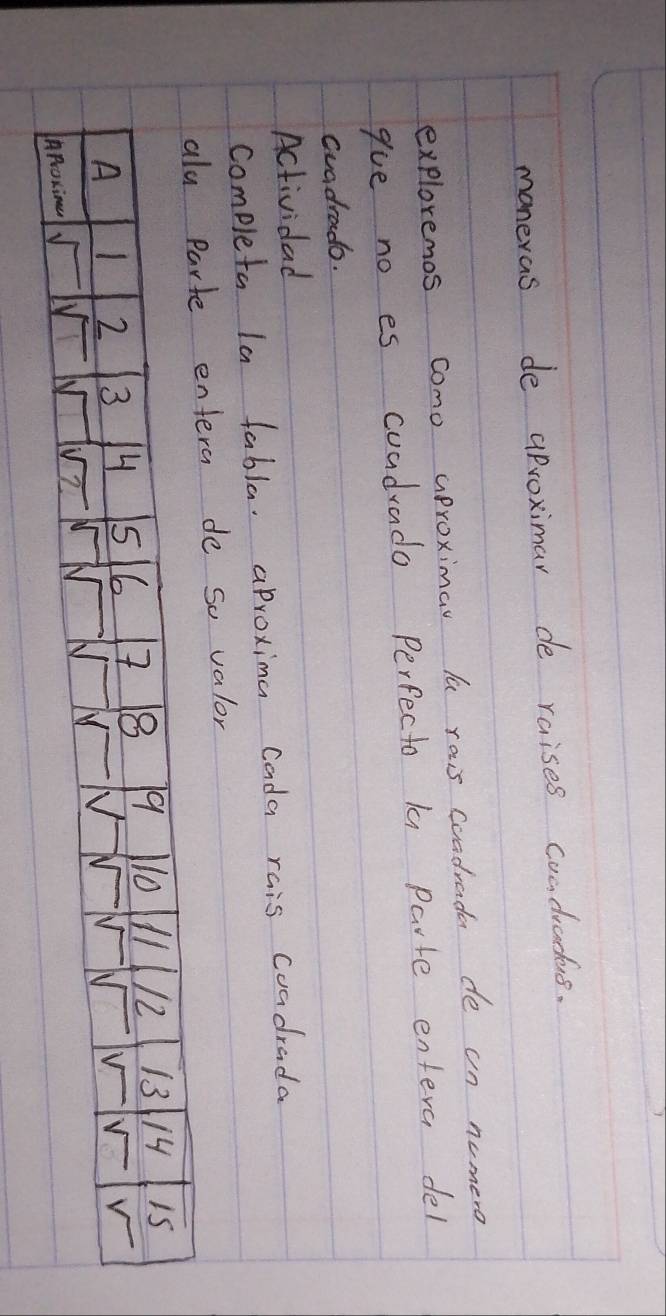 maneras de aproximar de raises cuadradas.
exploremos como aproximar la rais cuadrada de un numero
que no es cuadrado perfecto la parte entera del
cuadrado.
Actividad
Completa la tabla. aproxima cada rais cuadrada
ala parte entera de su valor
A 1 2 3 4 5 6 7 8 9 10 11 12 13 14 15
Aproxima √ √ √ √ √ √ √ √ √ √ √ √ √ √ √